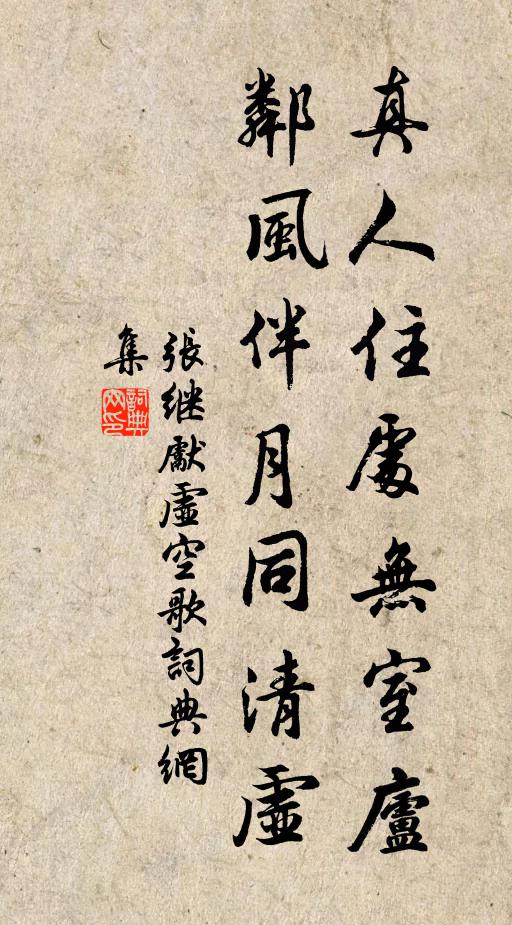 真人住處無室廬
鄰風伴月同清虛
張继獻虛空歌詞典網
集
詞典
网印